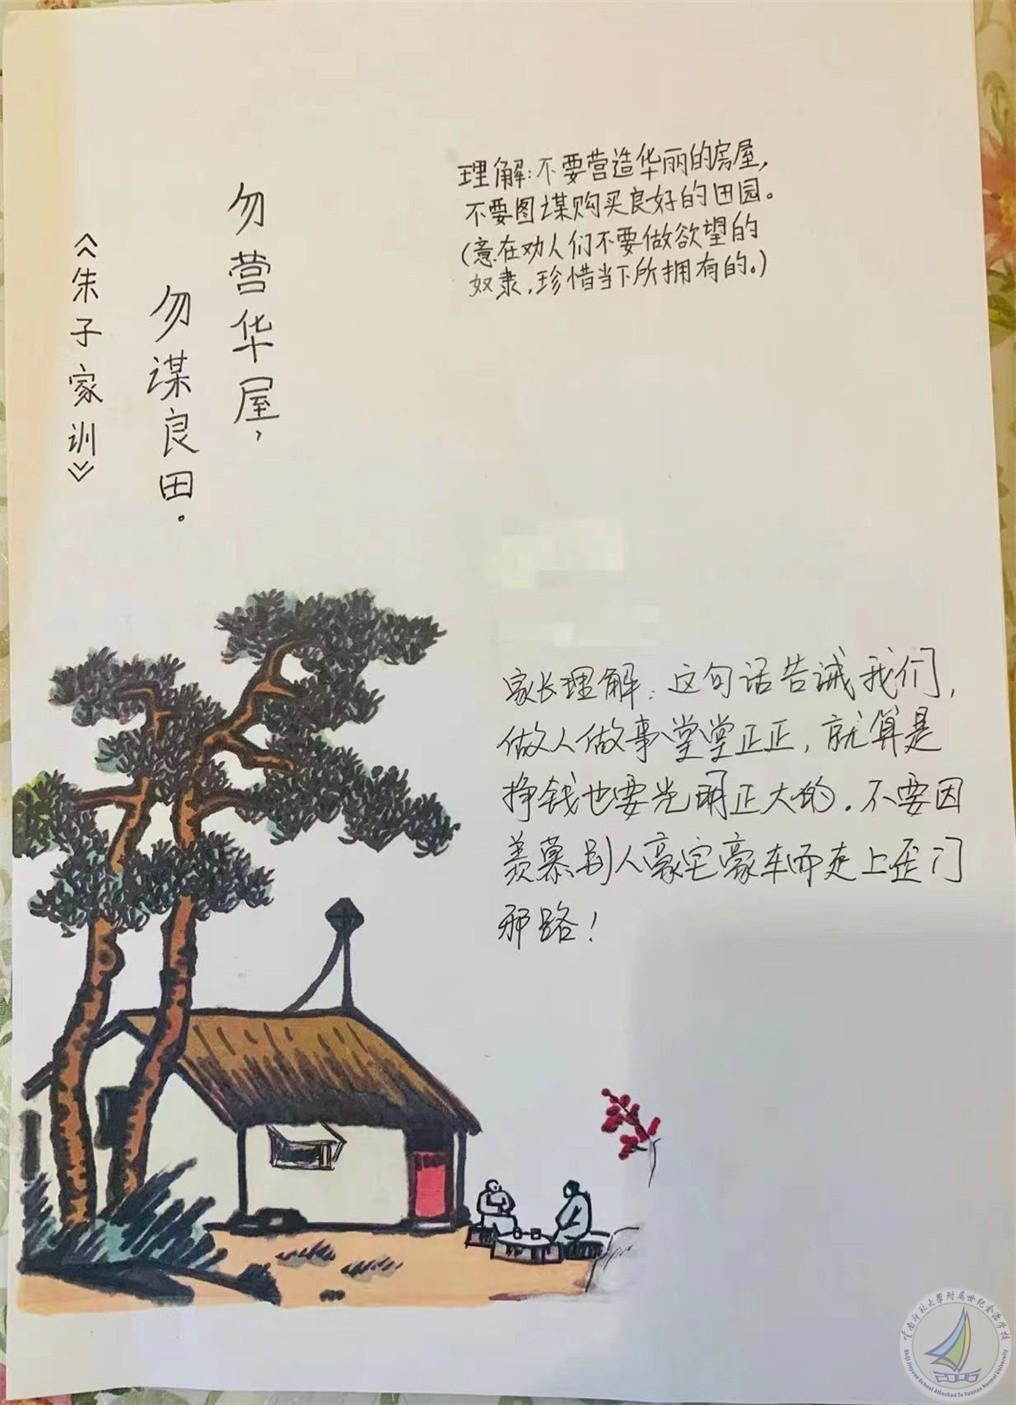 勿营华屋，
勿谋良田。
《朱子家训》
理解：不要营造华丽的房屋，
不要图谋购买良好的田园。
（意在劝人们不要做欲望的
奴隶，珍惜当下所拥有的。）
家长理解：这句话告诫我们，
做人做事堂堂正正，就算是
挣钱也要光明正大的。不要因
羡慕别人豪宅豪车而走上歪门
邪路！
云南师范大学附属世纪金源学校
Shiji Jinyuan School Attached To Yunnan Normal University